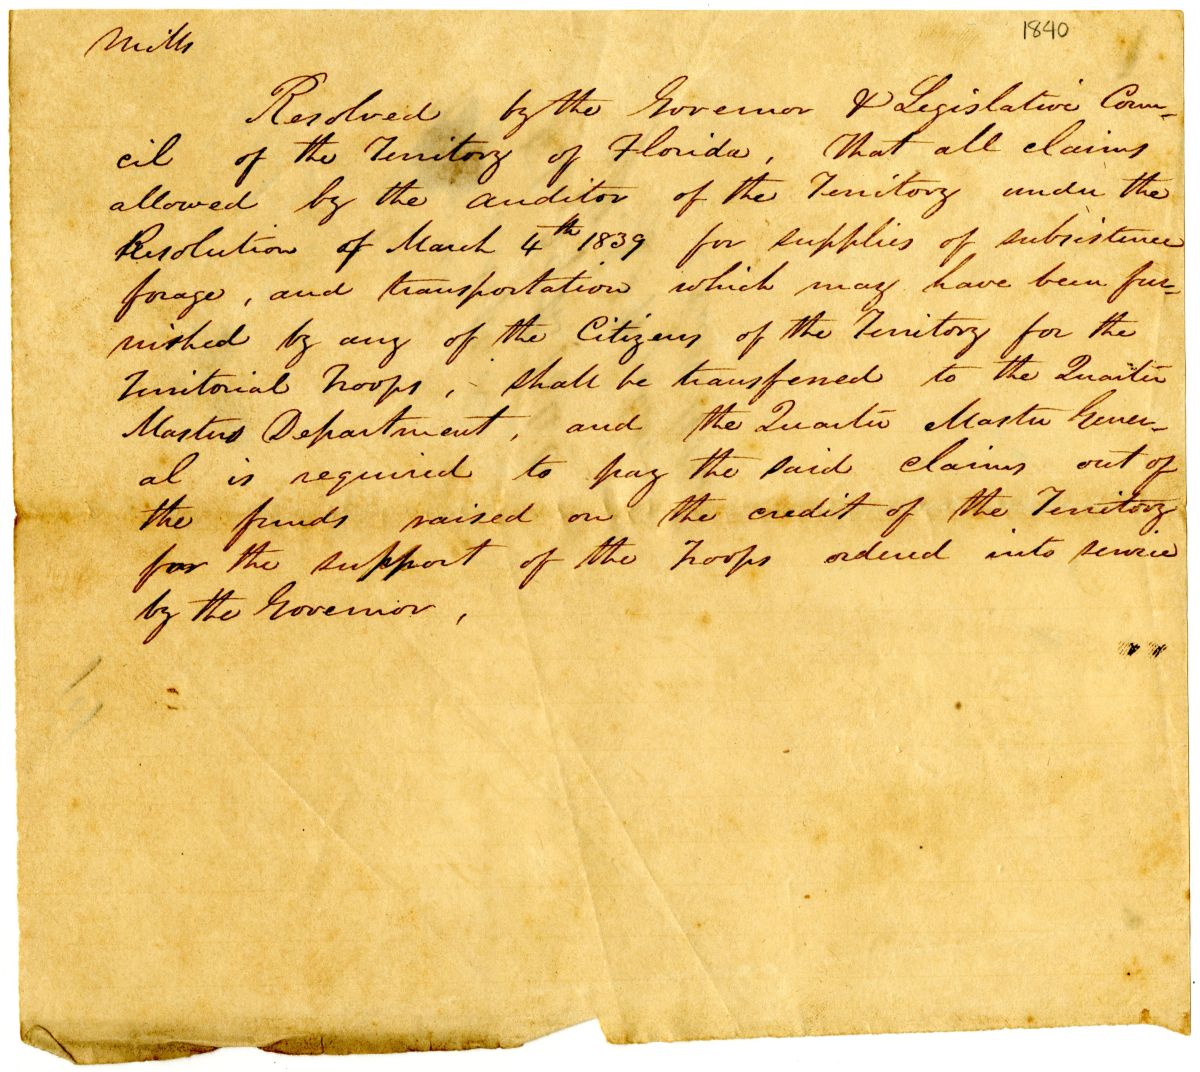 Mills
1840
Resolved by the Governor & Legislative Coun-
cil of the Territory of Florida, That all claims
allowed by the auditor of the Territory under the
Resolution of March 4th 1839 for supplies of subsistence
forage, and transportation which may have been fur-
nished by any of the Citizens of the Territory for the
Territorial Troops, shall be transferred to the Quarter
Masters Department, and the Quarter Master Gener-
al is required to pay the said claims out of
the funds raised on the credit of the Territory
for the support of the Troops ordered into service
by the Governor,